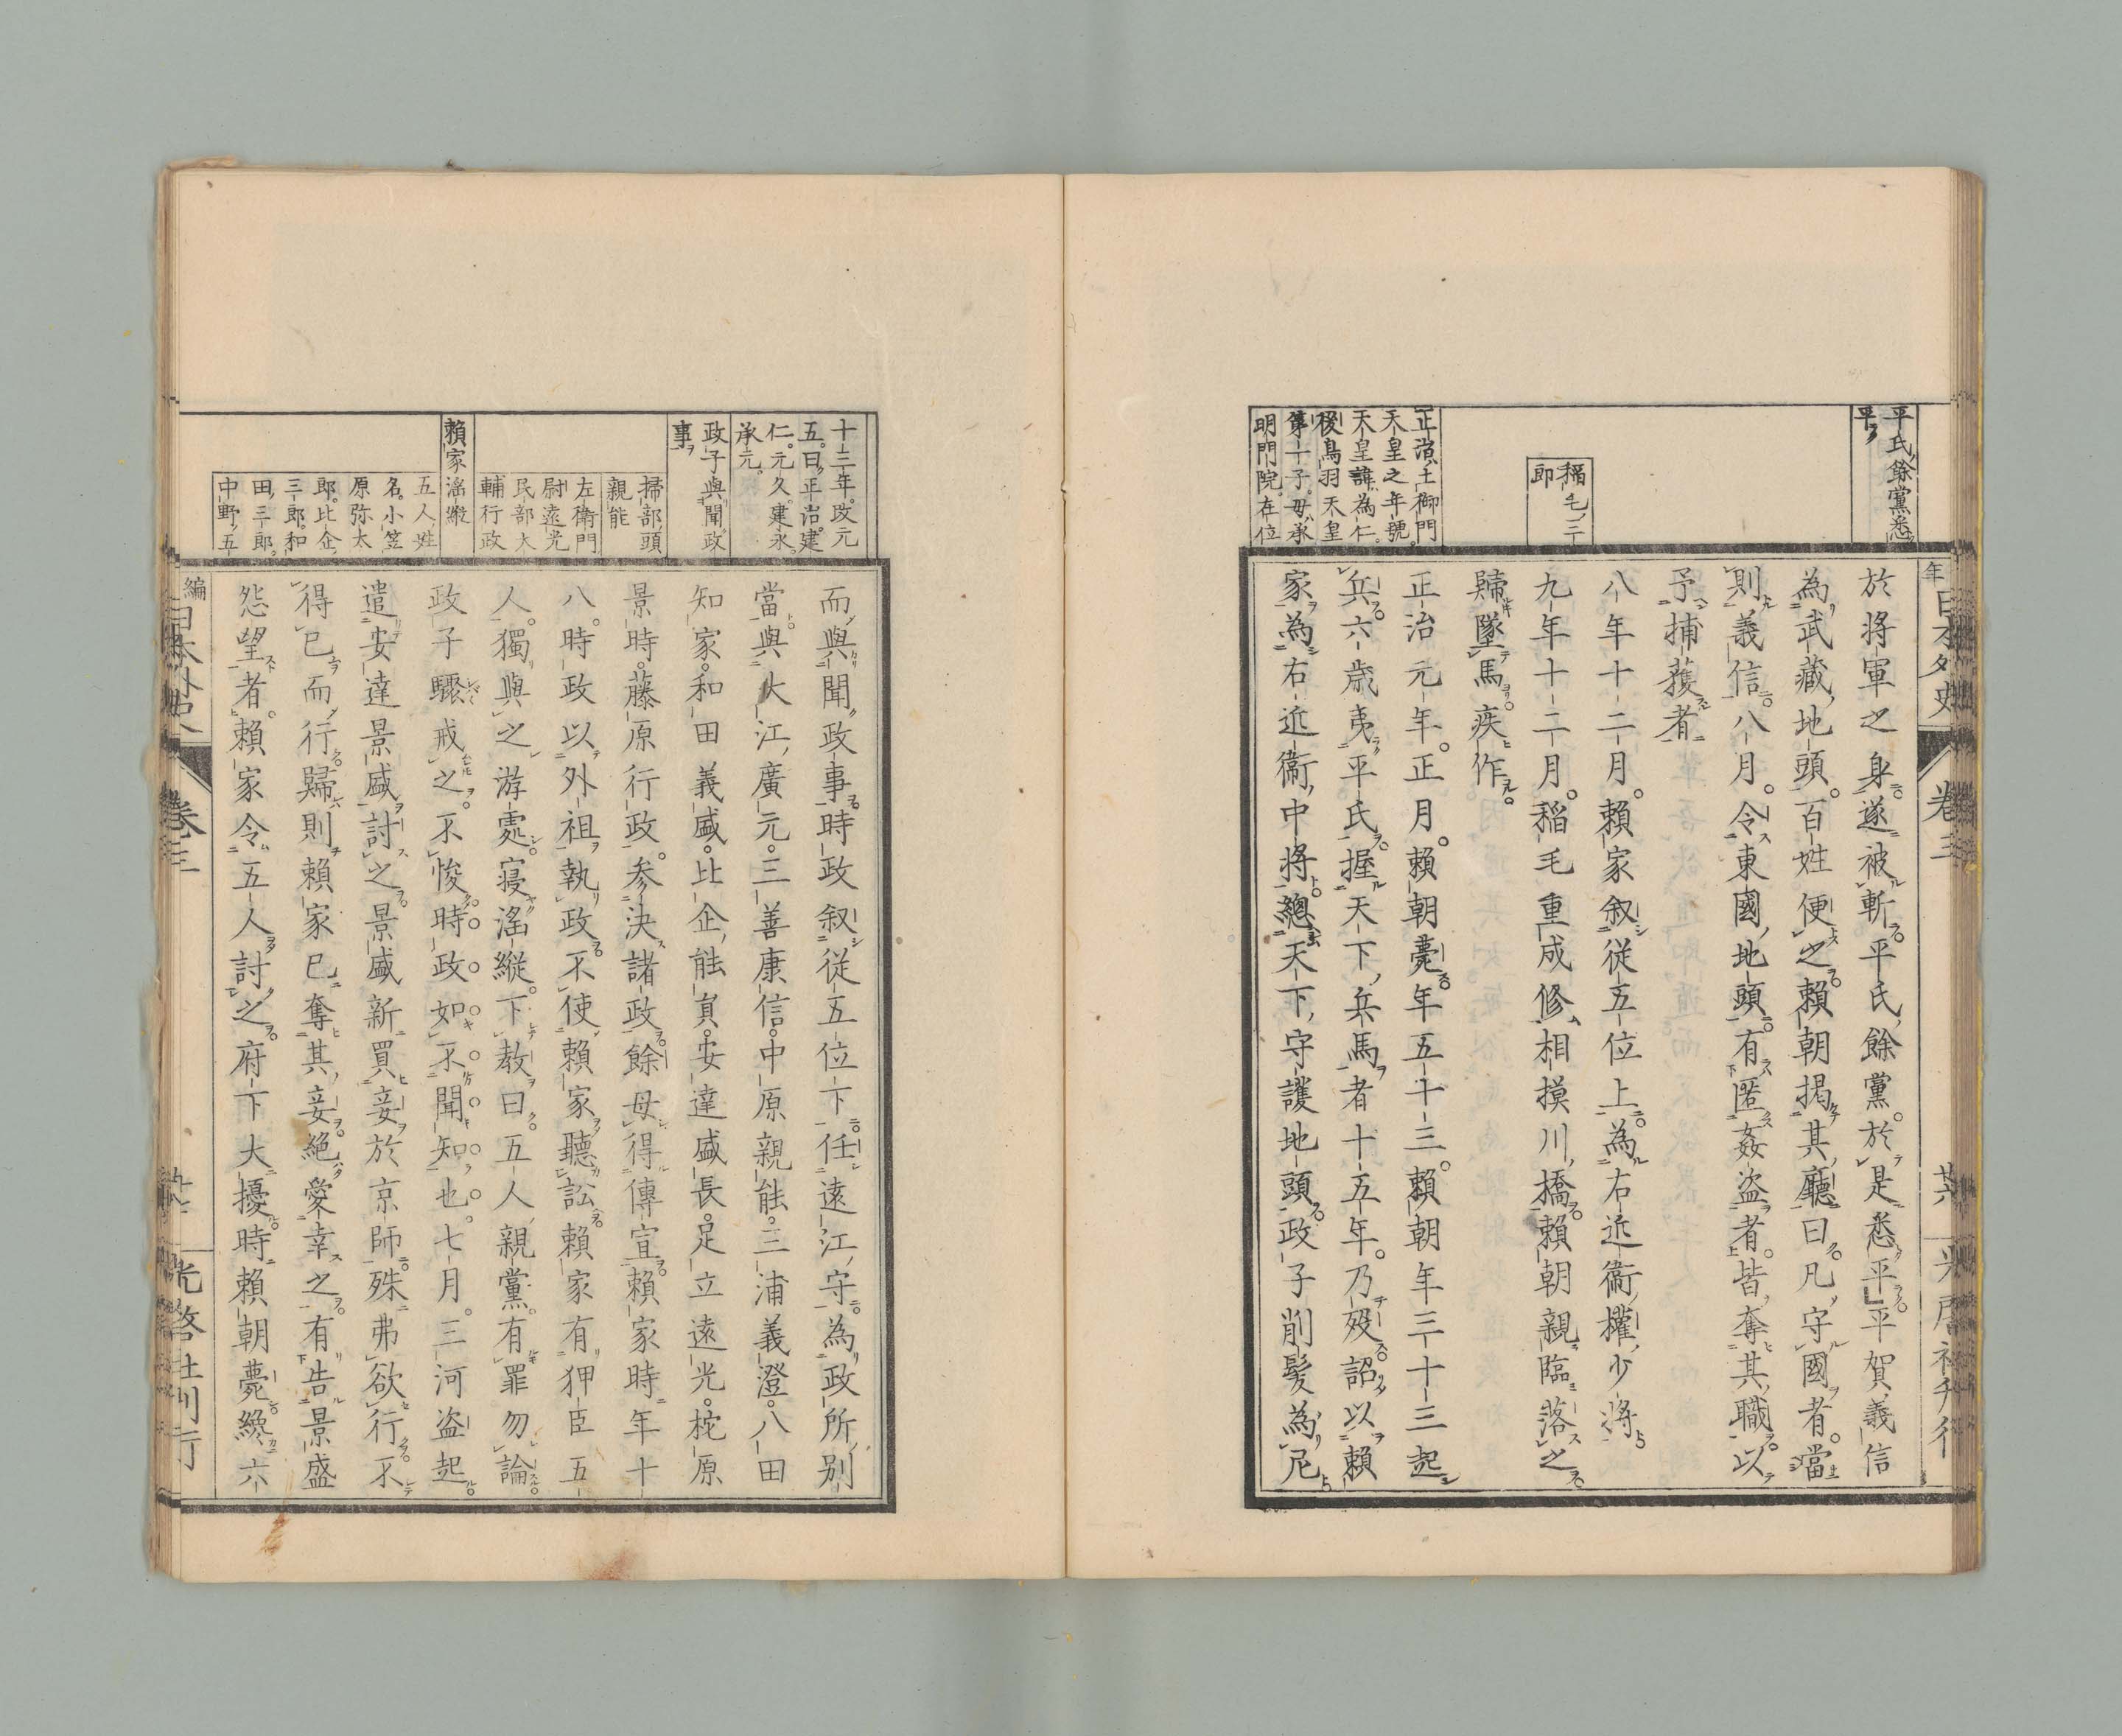 平氏餘黨悉
平
稲毛三
郎
正治土御門
天皇之年號
天皇諱為仁
後鳥羽天皇
第一子母承
明門院在位
年
日本外史
卷三
光啓社刊行
於將軍之身。遂被斬。平氏餘黨。於是悉平。平賀義信
為武藏地頭。百姓便之。賴朝揭其廳曰。凡守國者。當
則義信。八月。令東國地頭。有匿姦盗者。皆奪其職。以
予捕獲者
八年十二月。賴家叙從五位上。為右近衞權少將
九年十二月。稲毛重成修相摸川橋。賴朝親臨落之。
歸墜馬。疾作。
正治元年。正月。賴朝薨。年五十三。賴朝年三十三起
兵。六歳夷平氏。握天下兵馬者十五年。乃歿。詔以賴
家為右近衞中將。總天下守護地頭。政子削髮為尼
十三年。改元
五。曰正治。建
仁。元久。建永。
承元。
政子與聞政
事
掃部頭
親能
左衛門
尉遠光
民部大
輔行政
賴家滛縱
五人姓
名。小笠
原弥太
郎。比企
三郎。和
田三郎。
中野五
而與聞政事。時政叙從五位下。任遠江守。為政所別
當。與大江廣元。三善康信。中原親能。三浦義澄。八田
知家。和田義盛。比企能員。安達盛長。足立遠光。梶原
景時。藤原行政。参決諸政。餘毋得傳宣。賴家時年十
八。時政以外祖執政。不使賴家聽訟。賴家有狎臣五
人。獨與之游處。寝滛縱。下教曰。五人親黨。有罪勿論。
政子驟戒之。不悛。時政如不聞知也。七月。三河盗起。
遣安達景盛討之。景盛新買妾於京師。殊弗欲行。不
得已而行。歸則賴家已奪其妾。絶愛幸之。有告景盛
怨望者。賴家令五人討之。府下大擾。時賴朝薨纔六
編
日本外史
卷三
光啓社刊行